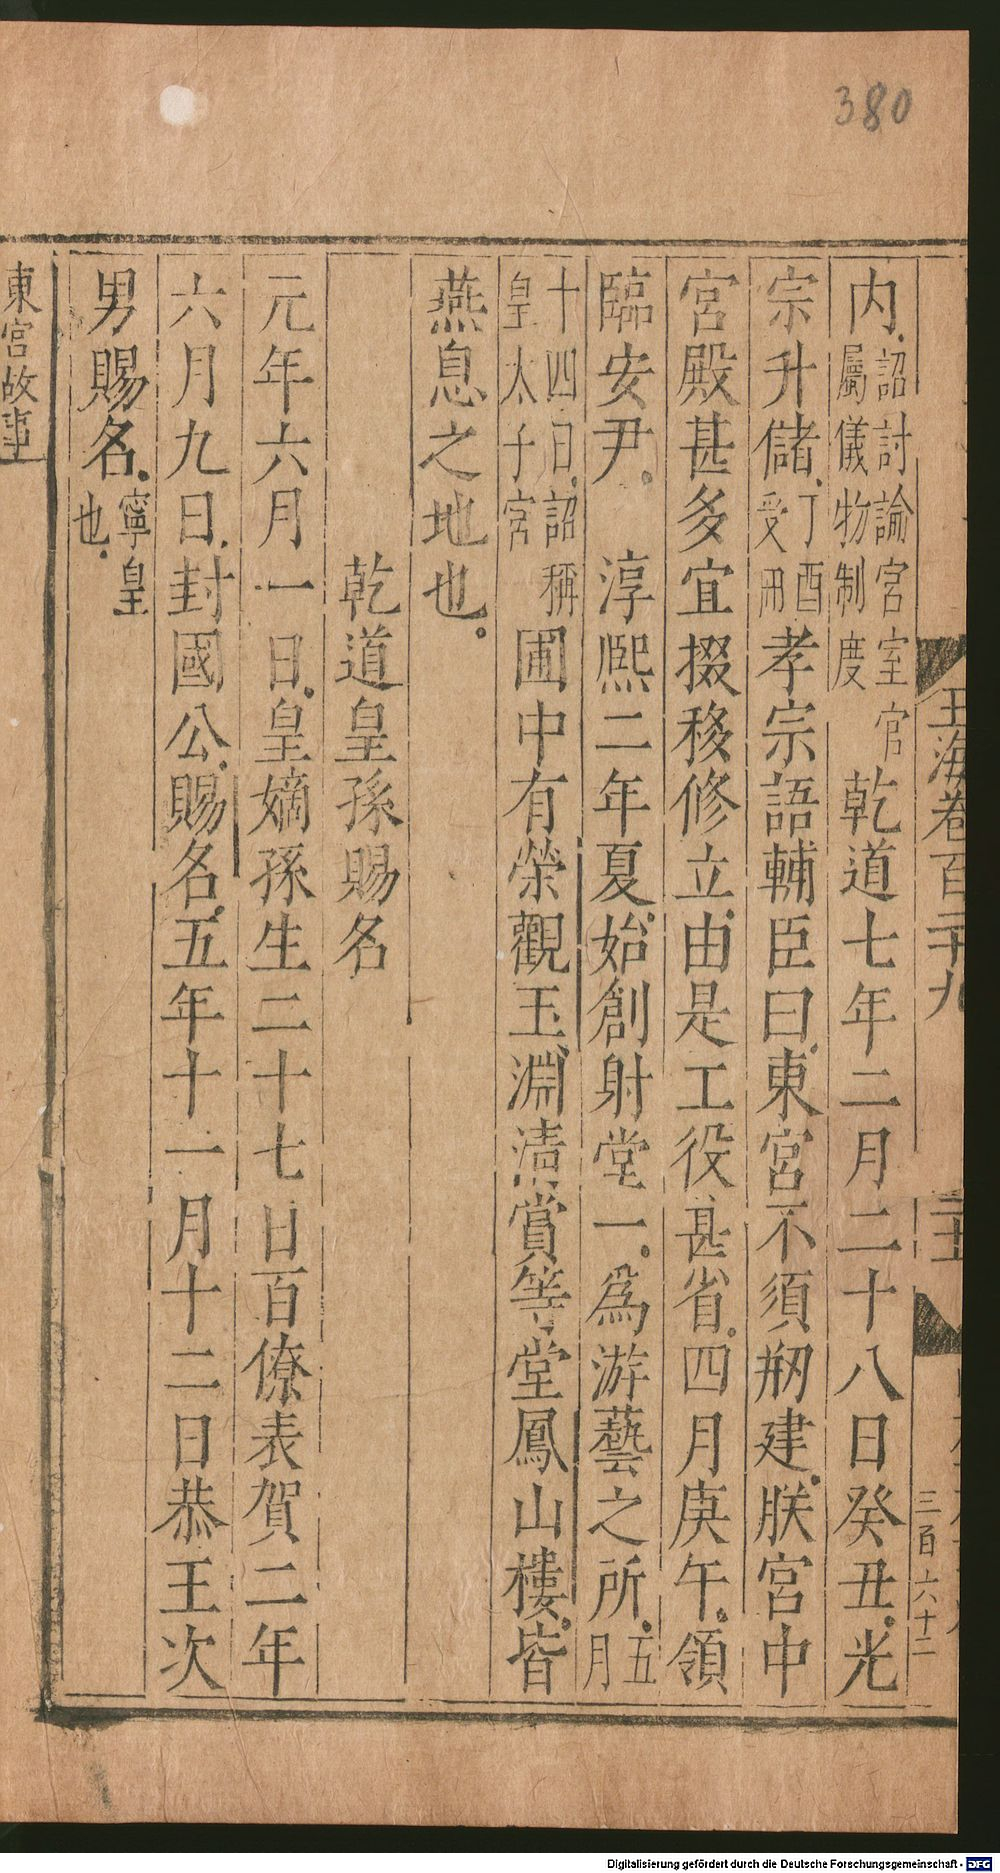 380
玉海卷百二十九
三百六十二
内詔討論宮室官屬儀物制度乾道七年二月二十八日癸丑光
宗升儲丁酉受册孝宗語輔臣曰東宮不須剏建朕宮中
宮殿甚多宜掇移修立由是工役甚省四月庚午領
臨安尹淳熈二年夏始創射堂一爲游藝之所五月
十四日詔稱皇太子宮圃中有榮觀玉淵清賞等堂鳳山樓皆
燕息之地也
乾道皇孫賜名
元年六月一日皇嫡孫生二十七日百僚表賀二年
六月九日封國公賜名五年十一月十二日恭王次
男賜名寧皇也
東宮故事
Digitalisierung gefördert durch die Deutsche Forschungsgemeinschaft - DFG